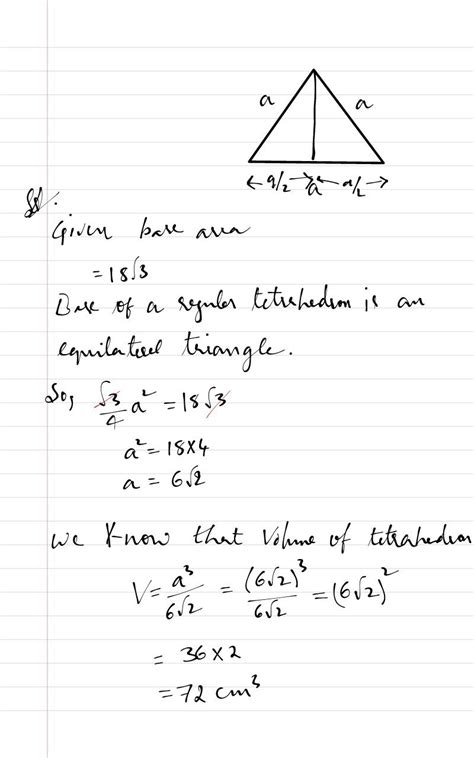 a a
a/2 a a/2
Sol.
Given base area
= 18√3
Base of a regular tetrahedron is an
equilateral triangle.
So, √3/4 a² = 18√3
a² = 18×4
a = 6√2
We know that Volume of tetrahedron
V = a³/6√2 = (6√2)³/6√2 = (6√2)²
= 36 × 2
= 72 cm³